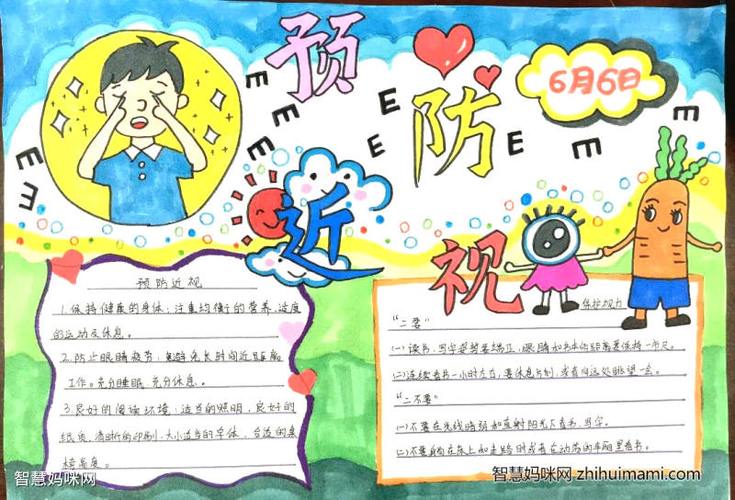 预
防
近
视
6月6日
E E E E E E E E E E
预防近视
1.保持健康的身体:注重均衡的营养、适度
的运动及休息。
2.防止眼睛疲劳:避免长时间近距离
工作。充分睡眠,充分休息。
3.良好的阅读环境:适当的照明,良好的
纸质,清晰的印刷,大小适当的字体,合适的桌
椅高度。
保护视力
“二要”
(一)读书、写字姿势要端正,眼睛和书本的距离要保持一市尺。
(二)连续看书一小时左右,要休息片刻,或者向远处眺望一会。
“二不要”
(一)不要在光线暗弱和直射阳光下看书、写字。
(二)不要躺在床上和走路时或者在动荡的车厢里看书。
智慧妈咪网
智慧妈咪网 zhihuimami.com